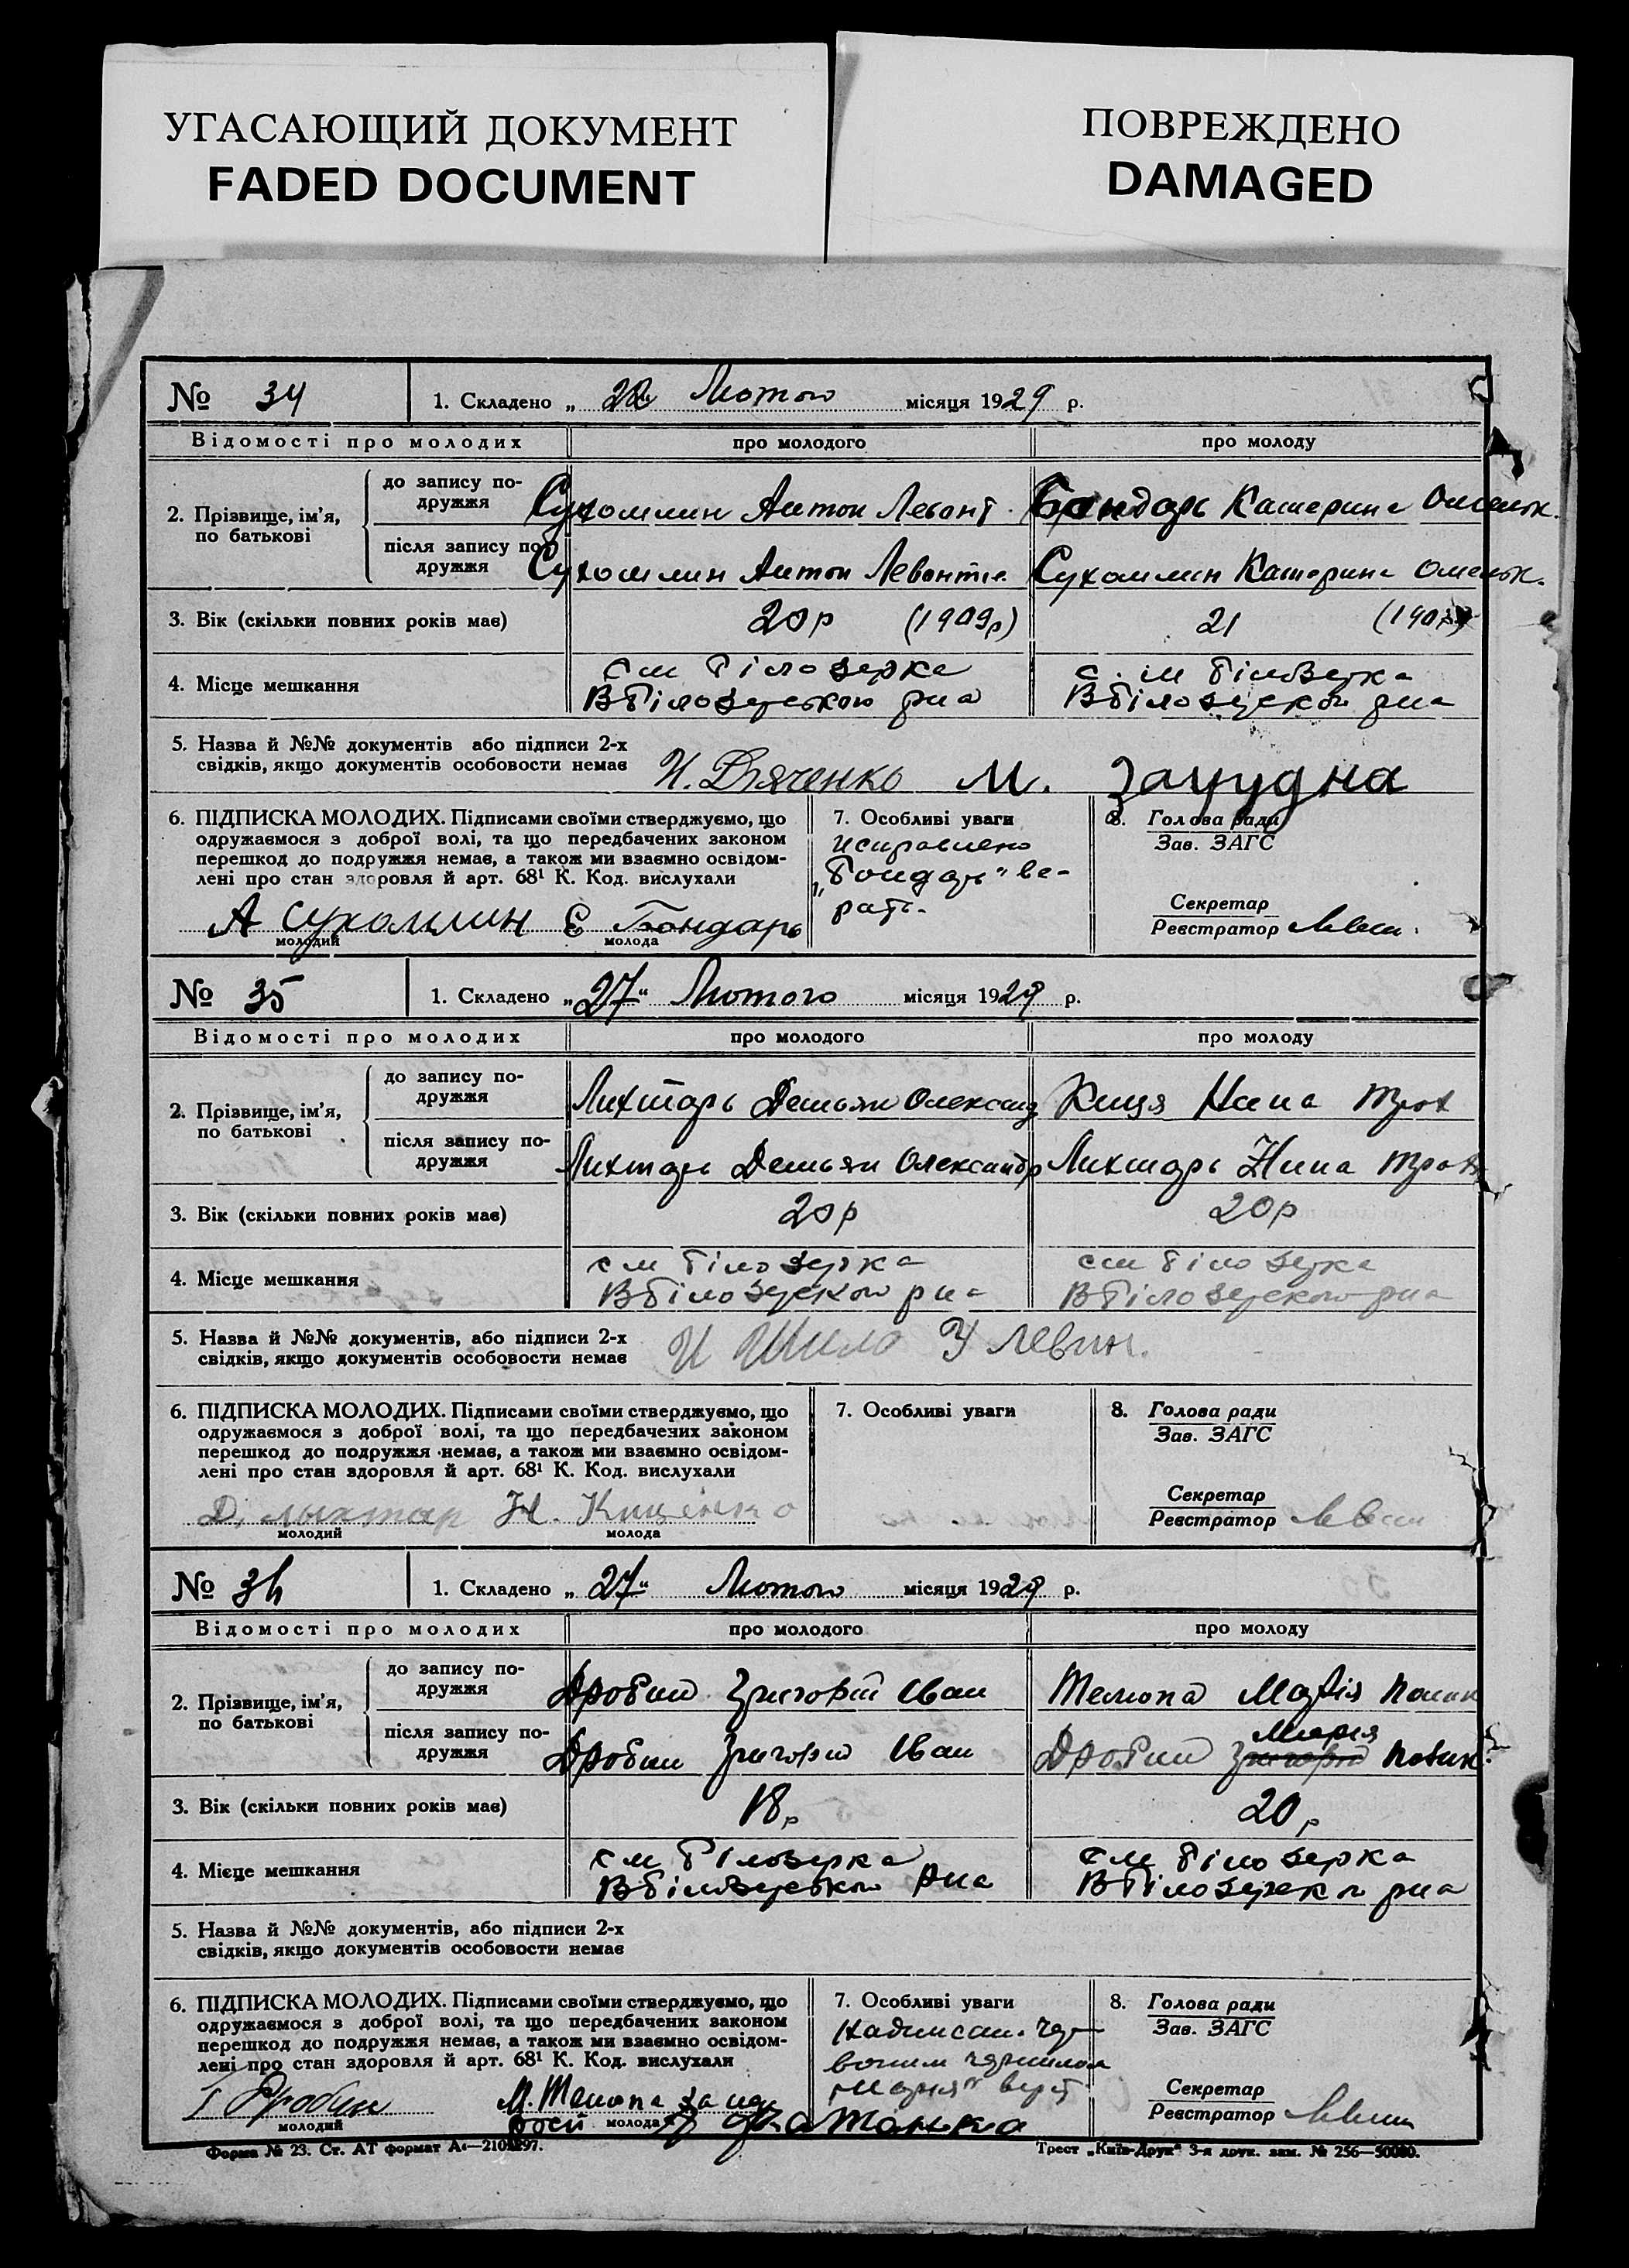 УГАСАЮЩИЙ ДОКУМЕНТ
FADED DOCUMENT
ПОВРЕЖДЕНО
DAMAGED
№ 34 1. Складено „ 22 Лютого місяця 1929 р.
Відомості про молодих про молодого про молоду
2. Прізвище, ім'я, по батькові
до запису по-
дружжя Сухомлин Антон Левонт. Бондарь Катерина Омельк.
після запису по-
дружжя Сухомлин Антон Левонтіе. Сухомлин Катерина Омельк.
3. Вік (скільки повних років має) 20р (1909р) 21
4. Місце мешкання
см Білозерка с. м Білозерка
В Білозерського рна В Білозерског рна
5. Назва й №№ документів або підписи 2-х
свідків, якщо документів особовости немає
И. Дяченко М.
6. ПІДПИСКА МОЛОДИХ. Підписами своїми стверджуємо, що
одружаємося з доброї волі, та що передбачених законом
перешкод до подружжя немає, а також ми взаємно освідом-
лені про стан здоровля й арт. 68¹ К. Код. вислухали
А Сухомлин Е Бондарь
молодий молода
7. Особливі уваги
исправлено
„Бондарь" ве-
рать.
8. Голова ради
Зав. ЗАГС
Секретар
Реєстратор
№ 35 1. Складено „27" Лютого місяця 1929 р.
Відомості про молодих про молодого про молоду
2. Прізвище, ім'я, по батькові
до запису по-
дружжя Лихтарь Демьян Олександ Киця Нина Трох
після запису по-
дружжя Лихтарь Демьян Олександр Лихтарь Нина Трох
3. Вік (скільки повних років має) 20р 20р
4. Місце мешкання
см Білозерка см Білозерка
В Білозерского рна В Білозерского рна
5. Назва й №№ документів, або підписи 2-х
свідків, якщо документів особовости немає
И Шило У Левин.
6. ПІДПИСКА МОЛОДИХ. Підписами своїми стверджуємо, що
одружаємося з доброї волі, та що передбачених законом
перешкод до подружжя немає, а також ми взаємно освідом-
лені про стан здоровля й арт. 68¹ К. Код. вислухали
Д. лыхтар Н. Киценко
молодий молода
7. Особливі уваги
8. Голова ради
Зав. ЗАГС
Секретар
Реєстратор
№ 36 1. Складено „27" Лютого місяця 1929 р.
Відомості про молодих про молодого про молоду
2. Прізвище, ім'я, по батькові
до запису по-
дружжя Дробин Григорій Іван Телюпа Марія
після запису по-
дружжя Дробин Григорій Іван Дробин Григорій Мария
3. Вік (скільки повних років має) 18р 20р
4. Місце мешкання
см Білозерка см Білозерка
В Білозерського рна В Білозерског рна
5. Назва й №№ документів, або підписи 2-х
свідків, якщо документів особовости немає
6. ПІДПИСКА МОЛОДИХ. Підписами своїми стверджуємо, що
одружаємося з доброї волі, та що передбачених законом
перешкод до подружжя немає, а також ми взаємно освідом-
лені про стан здоровля й арт. 68¹ К. Код. вислухали
Г Дробин М. Телюпа за не
молодий молода
7. Особливі уваги
Надписан. чер-
воним чернилом
„Мария"
8. Голова ради
Зав. ЗАГС
Секретар
Реєстратор
Форма № 23. Ст. АТ формат А4—210×297.
Трест „Київ-Друк" 3-я друк. зам. № 256—50000.